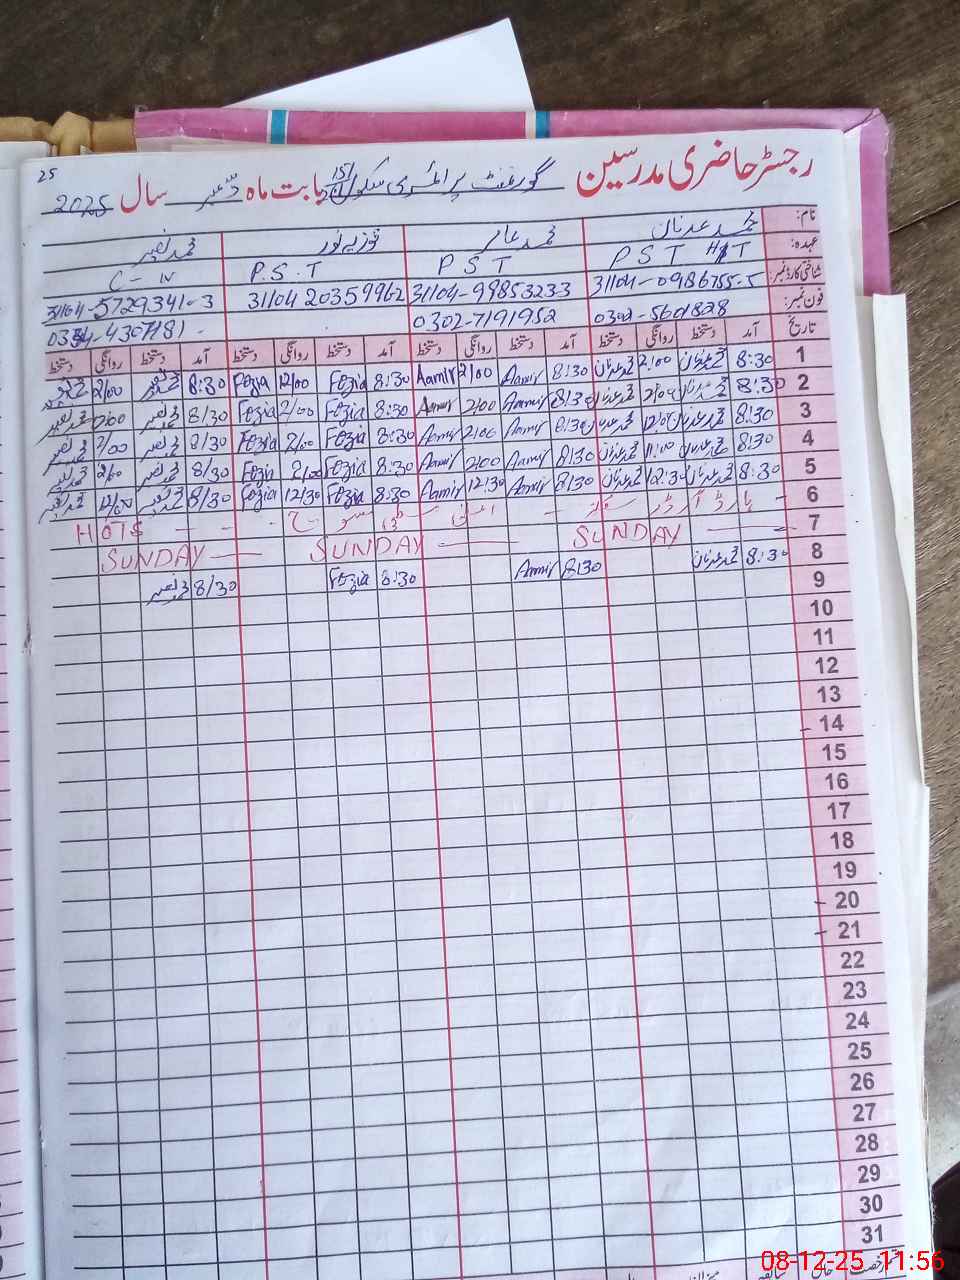 25
رجسٹر حاضری مدرسین گورنمنٹ پرائمری سکول 15 بابت ماہ دسمبر سال 2025
نام: محمد عدنان محمد عامر فوزیہ نور محمد نصیر
عہدہ: PST H/T PST P.S.T C-IV
شناختی کارڈ نمبر: 31104-0986755-5 31104-99853233 31104 20359962 31104-5729341-3
فون نمبر: 0302-5601828 0302-7191952 0334-4307181
تاریخ آمد دستخط روانگی دستخط آمد دستخط روانگی دستخط آمد دستخط روانگی دستخط آمد دستخط روانگی دستخط
1 8:30 محمد عدنان 2:00 محمد عدنان 8:30 Aamir 2/00 Aamir 8:30 Fozia 2/00 Fozia 8:30 محمد نصیر 2/00 محمد نصیر
2 8:30 محمد عدنان 2:00 محمد عدنان 8:30 Aamir 2/00 Aamir 8:30 Fozia 2/00 Fozia 8/30 محمد نصیر 2:00 محمد نصیر
3 8:30 محمد عدنان 2:00 محمد عدنان 8:30 Aamir 2:00 Aamir 8:30 Fozia 2/00 Fozia 8/30 محمد نصیر 2/00 محمد نصیر
4 8:30 محمد عدنان محمد عدنان 8:30 Aamir 2:00 Aamir 8:30 Fozia 2/00 Fozia 8/30 محمد نصیر 2/00 محمد نصیر
5 8:30 محمد عدنان 12:30 محمد عدنان 8:30 Aamir 12:30 Aamir 8:30 Fozia 12/30 Fozia 8/30 محمد نصیر 12/00 محمد نصیر
6
7 SUNDAY SUNDAY SUNDAY
8 8:30 محمد عدنان 8:30 Aamir 8:30 Fozia 8/30 محمد نصیر
9
10
11
12
13
14
15
16
17
18
19
20
21
22
23
24
25
26
27
28
29
30
31
08-12-25 11:56